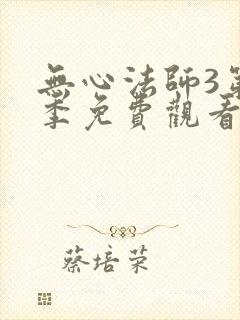 無心法師3第
季免費觀看
蔡培荣